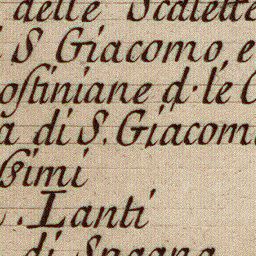 delle Scalette
S Giacomo e
ostiniane d. le C
a di S. Giacom
ssimi
. Lanti
di Spagna